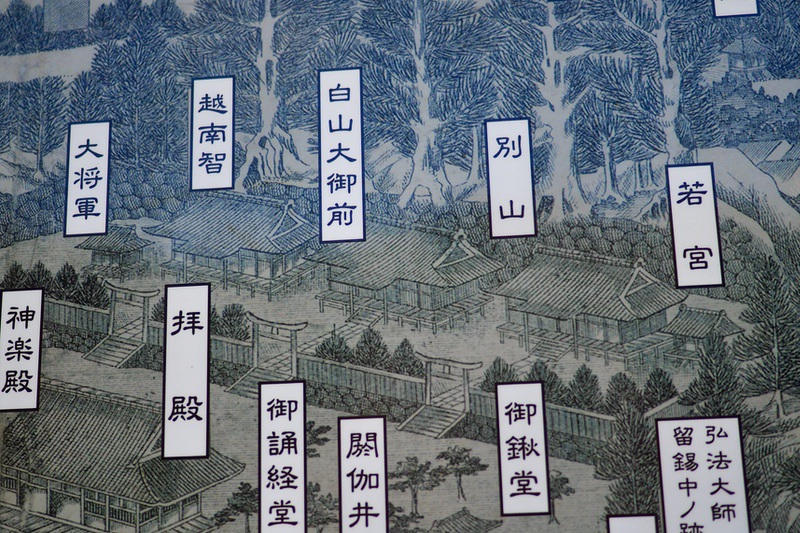 大将軍
越南智
白山大御前
別山
若宮
神楽殿
拝殿
御誦経堂
閼伽井
御鍬堂
弘法大師
留錫中ノ跡